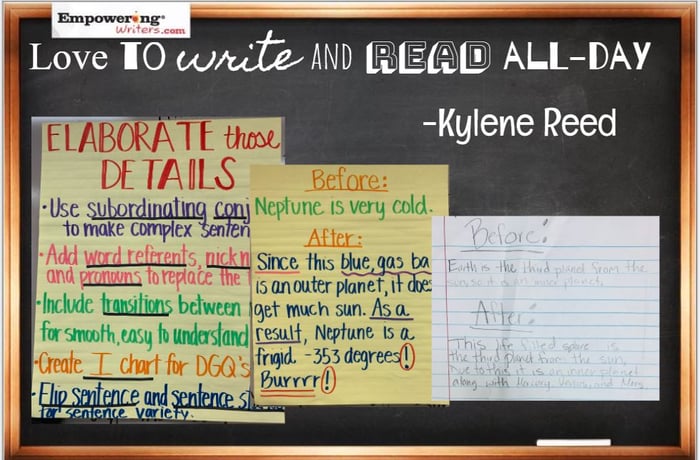 Empowering®
Writers.com
Love TO write AND READ ALL-DAY
-Kylene Reed
ELABORATE those
DETAILS
•Use subordinating conj
to make complex senten
•Add word referents, nickn
and pronouns to replace the
•Include transitions between
for smooth, easy to understand
•Create I chart for DGQ's
•Flip sentence and sentence st
for sentence variety.
Before:
Neptune is very cold.
After:
Since this blue, gas ba
is an outer planet, it does
get much sun. As a
result, Neptune is a
frigid. -353 degrees!
Burrrr!
Before:
Earth is the third planet from the
sun, so it is an inner planet.
After:
This life filled space is
the third planet from the sun,
Due to this it is an inner planet
along with Mercury, Venus, and Mars.